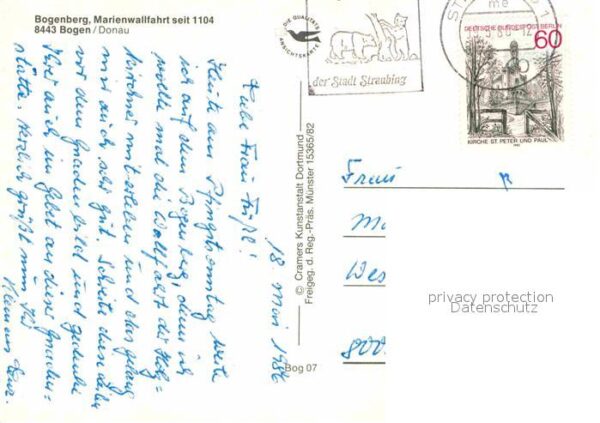 Bogenberg, Marienwallfahrt seit 1104
8443 Bogen / Donau
DIE QUALITÄTS
ANSICHTSKARTE
der Stadt Straubing
DEUTSCHE BUNDESPOST BERLIN
60
KIRCHE ST. PETER UND PAUL
© Cramers Kunstanstalt Dortmund
Freigeg. d. Reg.-Präs. Münster 15365/82
Bog 07
18. Mai 1986
Liebe Frau
Heute am Pfingstsonntag
ich auf dem Bogenberg, denn ich
wollte mal die Wallfahrt der Holz-
kirchner miterleben und das gelang
mir auch sehr gut. Schickte diese Karte
vor dem Gnadenbild und gedenke
Ihrer auch im Gebet an dieser Gnaden-
stätte. Herzlich grüßt nun Ihr
Klemens
Frau
Wes
800
privacy protection
Datenschutz